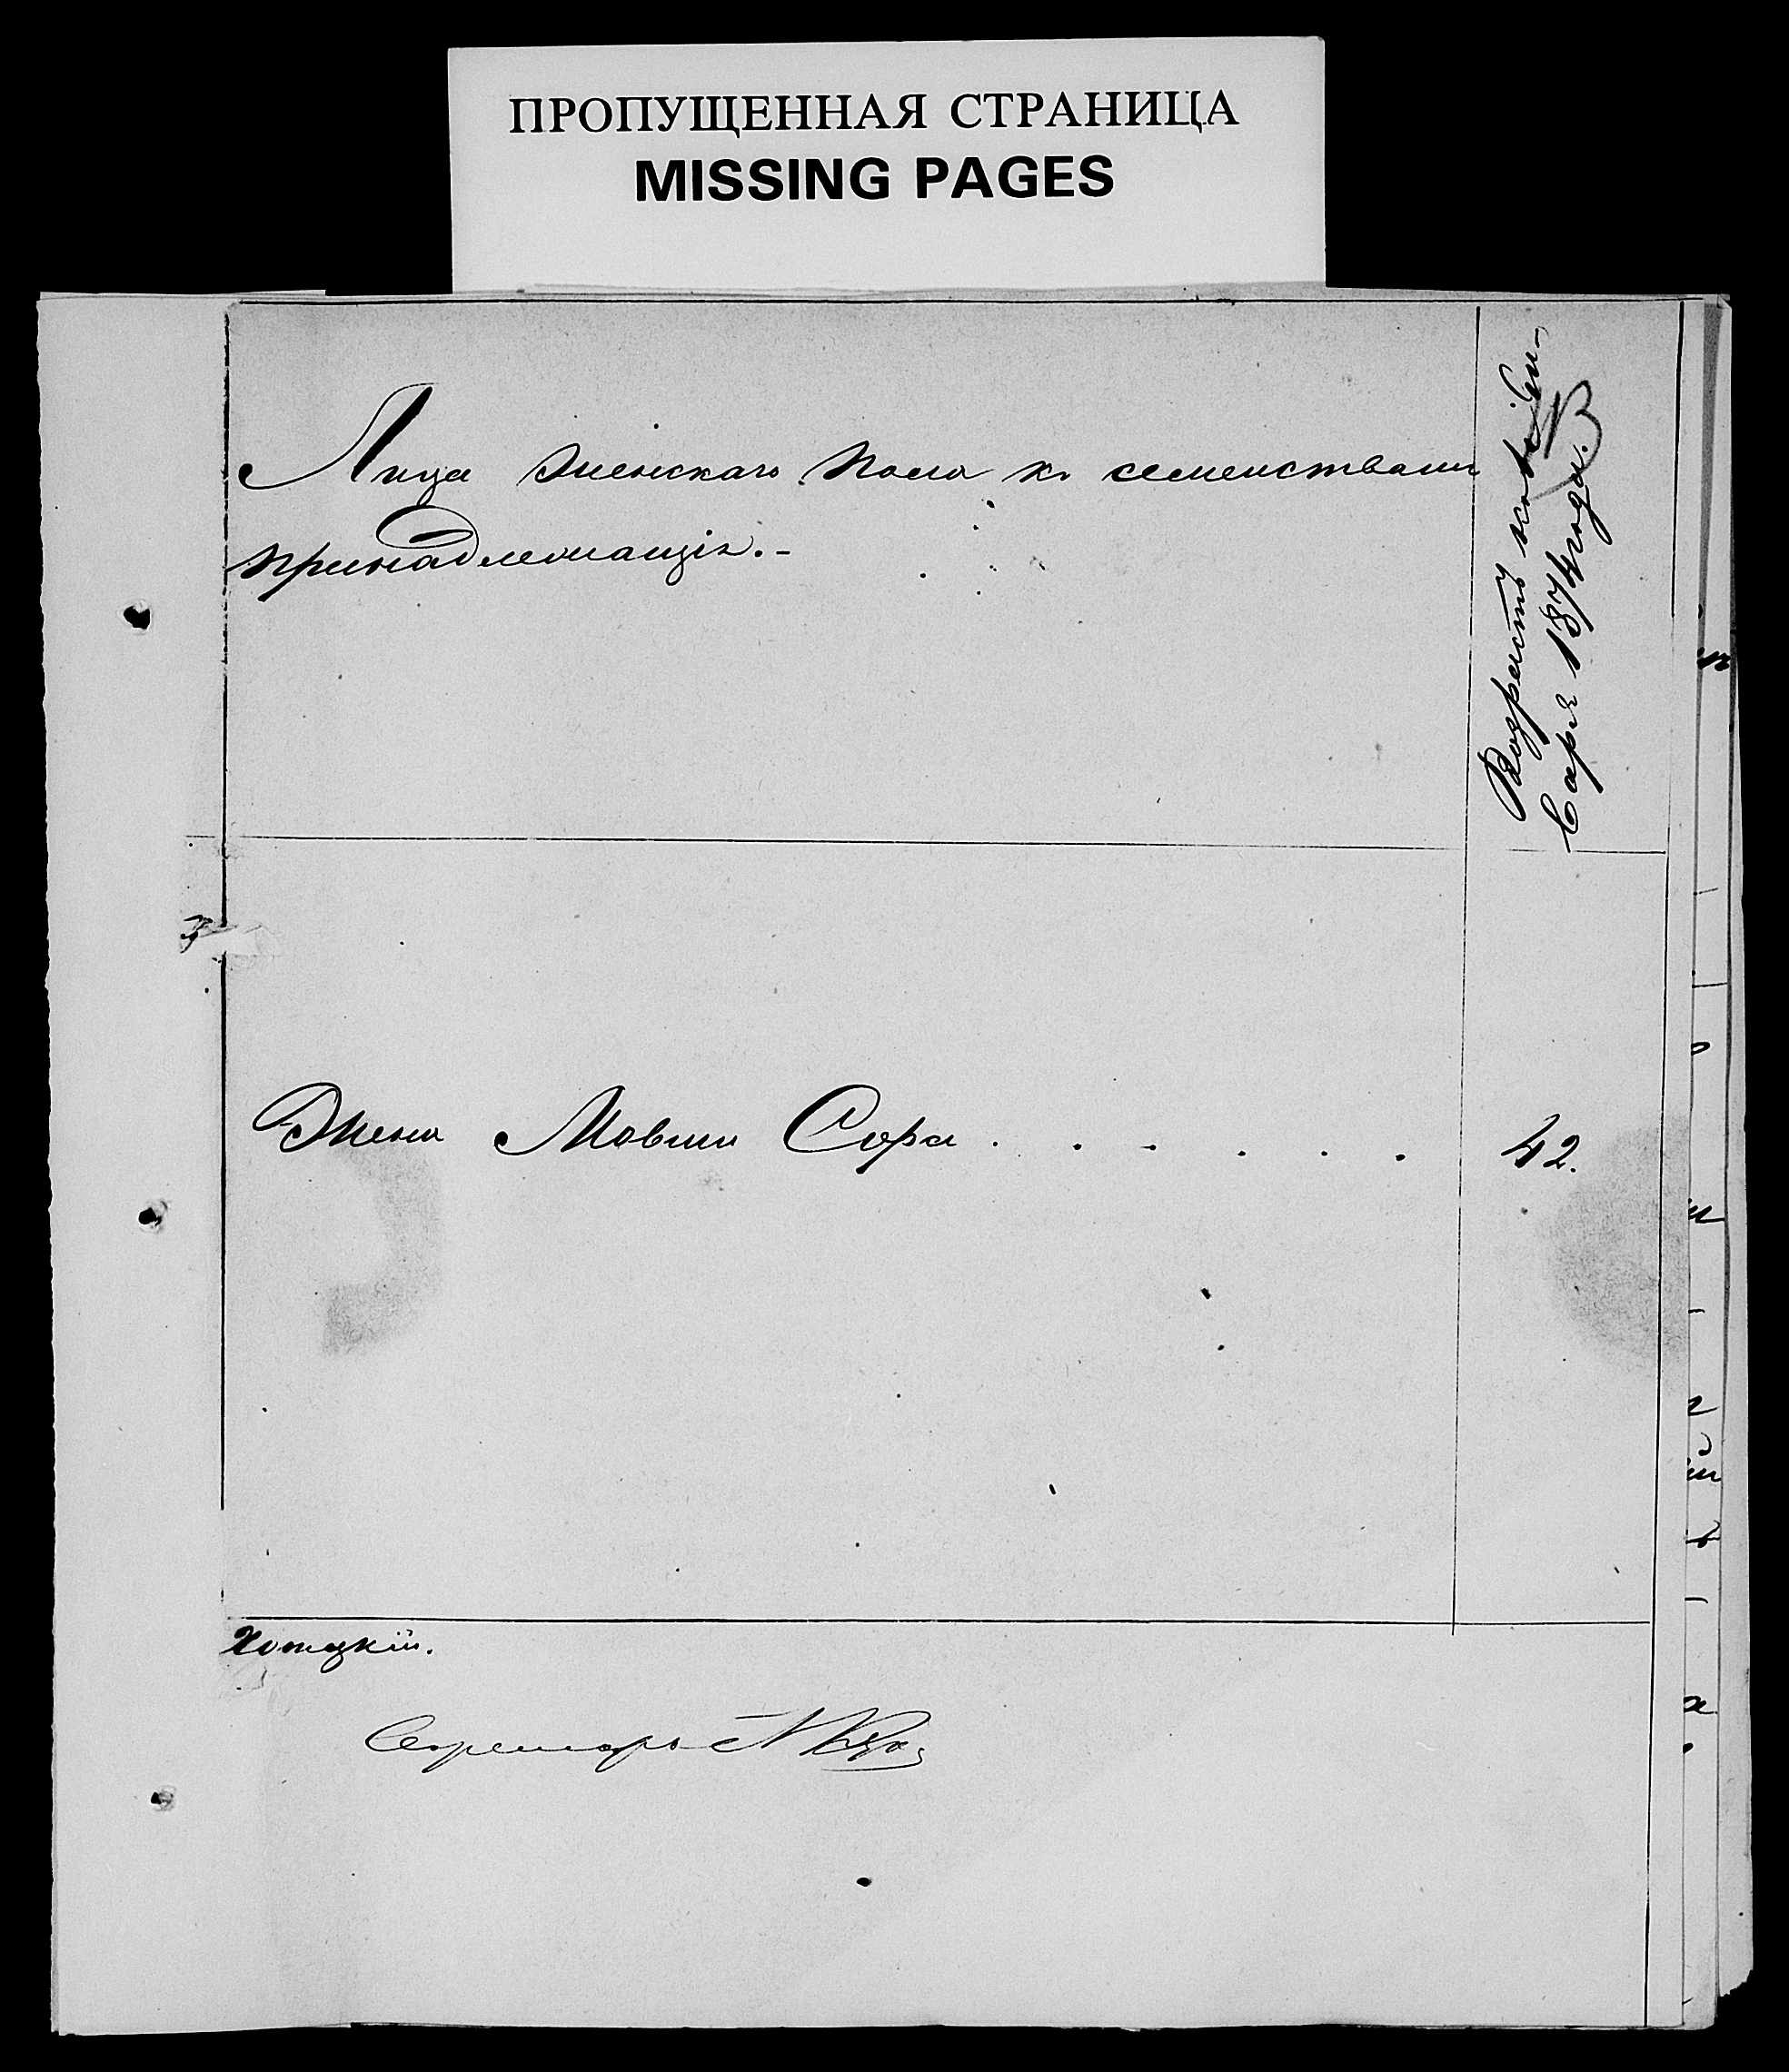 ПРОПУЩЕННАЯ СТРАНИЦА
MISSING PAGES
Лица женскаго пола къ семействамъ
принадлежащія.-
Возрастъ ихъ къ 1 Ян-
варя 1874 года.
Жена Мовши Сора . . . . . .
42.
Хотцкій.
Секретарь